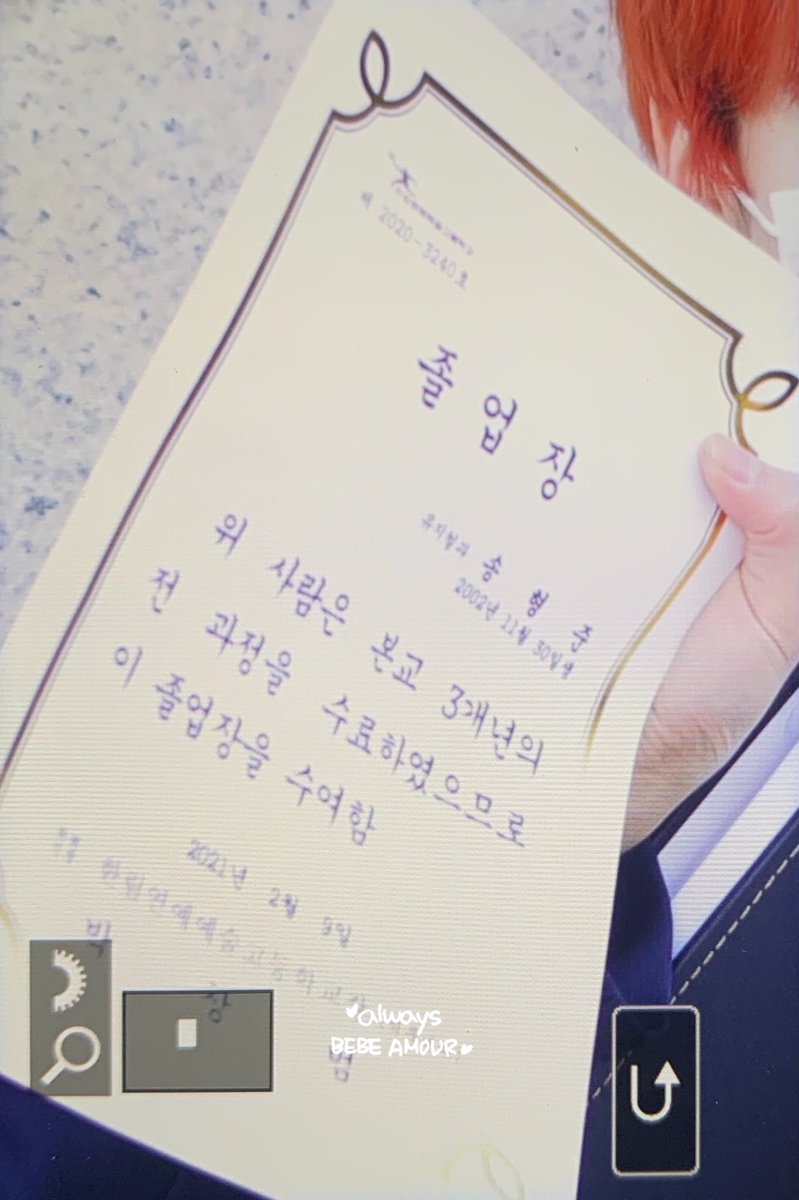 제 2020-3240호
졸 업 장
뮤지컬과 송 형 준
2002년 11월 30일생
위 사람은 본교 3개년의
전 과정을 수료하였으므로
이 졸업장을 수여함
2021년 2월 9일
한림연예예술고등학교장
박
always
BEBE AMOUR